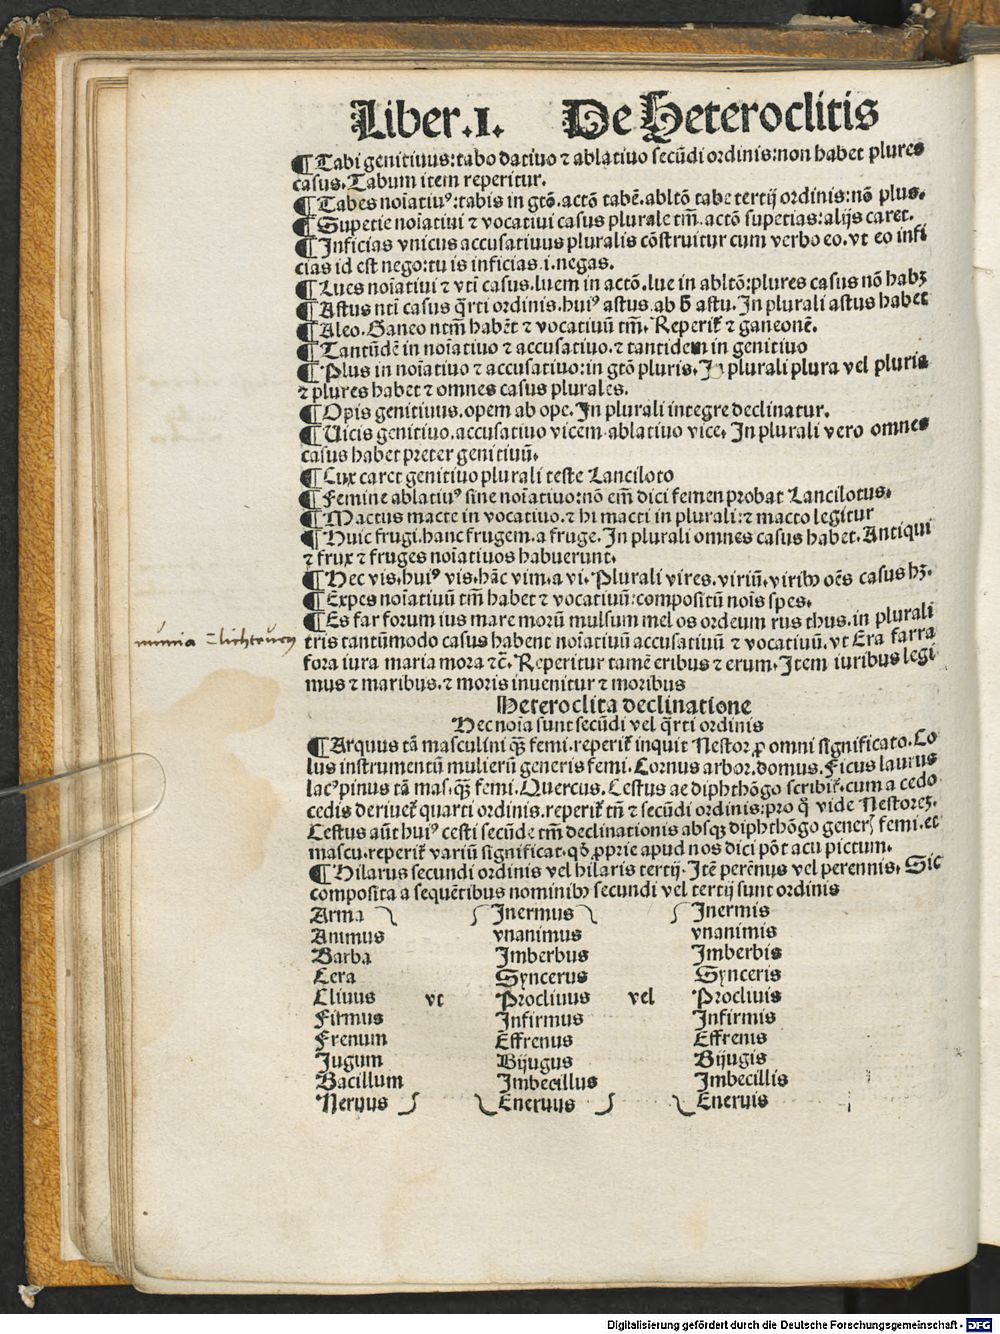 Liber.I. De Heteroclitis
¶Tabi genitiuus:tabo datiuo ⁊ ablatiuo secũdi ordinis:non habet plures
casus.Tabum item reperitur.
¶Tabes noĩatiuꝰ:tabis in gtõ.actõ tabẽ.abltõ tabe tertij ordinis:nõ plus.
¶Supetie noĩatiui ⁊ vocatiui casus plurale tm̃.actõ supetias:alijs caret.
¶Inficias vnicus accusatiuus pluralis cõstruitur cum verbo eo.vt eo infi
cias id est nego:tu is inficias.i.negas.
¶Lues noĩatiui ⁊ vti casus.luem in actõ.lue in abltõ:plures casus nõ habꝫ
¶Astus nti casus q̃rti ordinis.huiꝰ astus.ab h̃ astu.In plurali astus habet
¶Aleo.Ganeo ntm̃ habẽt ⁊ vocatiuũ tm̃.Reperit̃ ⁊ ganeonẽ.
¶Tantũdẽ in noĩatiuo ⁊ accusatiuo.⁊ tantidem in genitiuo
¶Plus in noĩatiuo ⁊ accusatiuo:in gtõ pluris.In plurali plura vel pluria
⁊ plures habet ⁊ omnes casus plurales.
¶Opis genitiuus.opem ab ope.In plurali integre declinatur.
¶Uicis genitiuo.accusatiuo vicem ablatiuo vice.In plurali vero omnes
casus habet preter genitiuũ.
¶Lux caret genitiuo plurali teste Lanciloto
¶Femine ablatiuꝰ sine noĩatiuo:nõ em̃ dici femen probat Lancilotus.
¶Mactus macte in vocatiuo.⁊ hi macti in plurali:⁊ macto legitur
¶Huic frugi.hanc frugem.a fruge.In plurali omnes casus habet.Antiqui
⁊ frux ⁊ fruges noĩatiuos habuerunt.
¶Hec vis.huiꝰ vis.hãc vim.a vi.Plurali vires.viriũ.viribꝰ oẽs casus hꝫ.
¶Expes noĩatiuũ tm̃ habet ⁊ vocatiuũ:compositũ noĩs spes.
¶Es far forum ius mare morũ mulsum mel os ordeum rus thus.in plurali
munia = lichtourg
tris tantũmodo casus habent noĩatiuũ accusatiuũ ⁊ vocatiuũ.vt Era farra
fora iura maria mora ⁊c̃.Reperitur tamẽ eribus ⁊ erum.Item iuribus legi
mus ⁊ maribus.⁊ moris inuenitur ⁊ moribus
Heteroclita declinatione
Hec noĩa sunt secũdi vel q̃rti ordinis
¶Arquus tã masculini qꝫ̃ femi.reperit̃ inquit Nestor ꝓ omni significato.Co
lus instrumentũ mulierũ generis femi.Cornus arbor.domus.Ficus laurus
lacꝰpinus tã mas.qꝫ̃ femi.Quercus.Cestus ae diphthõgo scribit̃.cum a cedo
cedis deriuet̃ quarti ordinis.reperit̃ tñ ⁊ secũdi ordinis:pro q̃ vide Nestorẽ.
Cestus aũt huiꝰ cesti secũde tm̃ declinationis absqꝫ diphthõgo generꝭ femi.et
mascu.reperit̃ variũ significat.qõ ꝓprie apud nos dici põt acu pictum.
¶Hilarus secundi ordinis vel hilaris tertij.Itẽ perẽnus vel perennis.Sic
composita a sequẽtibus nominibꝰ secundi vel tertij sunt ordinis
Arma Inermus Inermis
Animus vnanimus vnanimis
Barba Imberbus Imberbis
Cera Syncerus Synceris
Cliuus vt Procliuus vel Procliuis
Firmus Infirmus Infirmis
Frenum Effrenus Effrenis
Jugum Bijugus Bijugis
Bacillum Imbecillus Imbecillis
Neruus Eneruus Eneruis
Digitalisierung gefördert durch die Deutsche Forschungsgemeinschaft - DFG